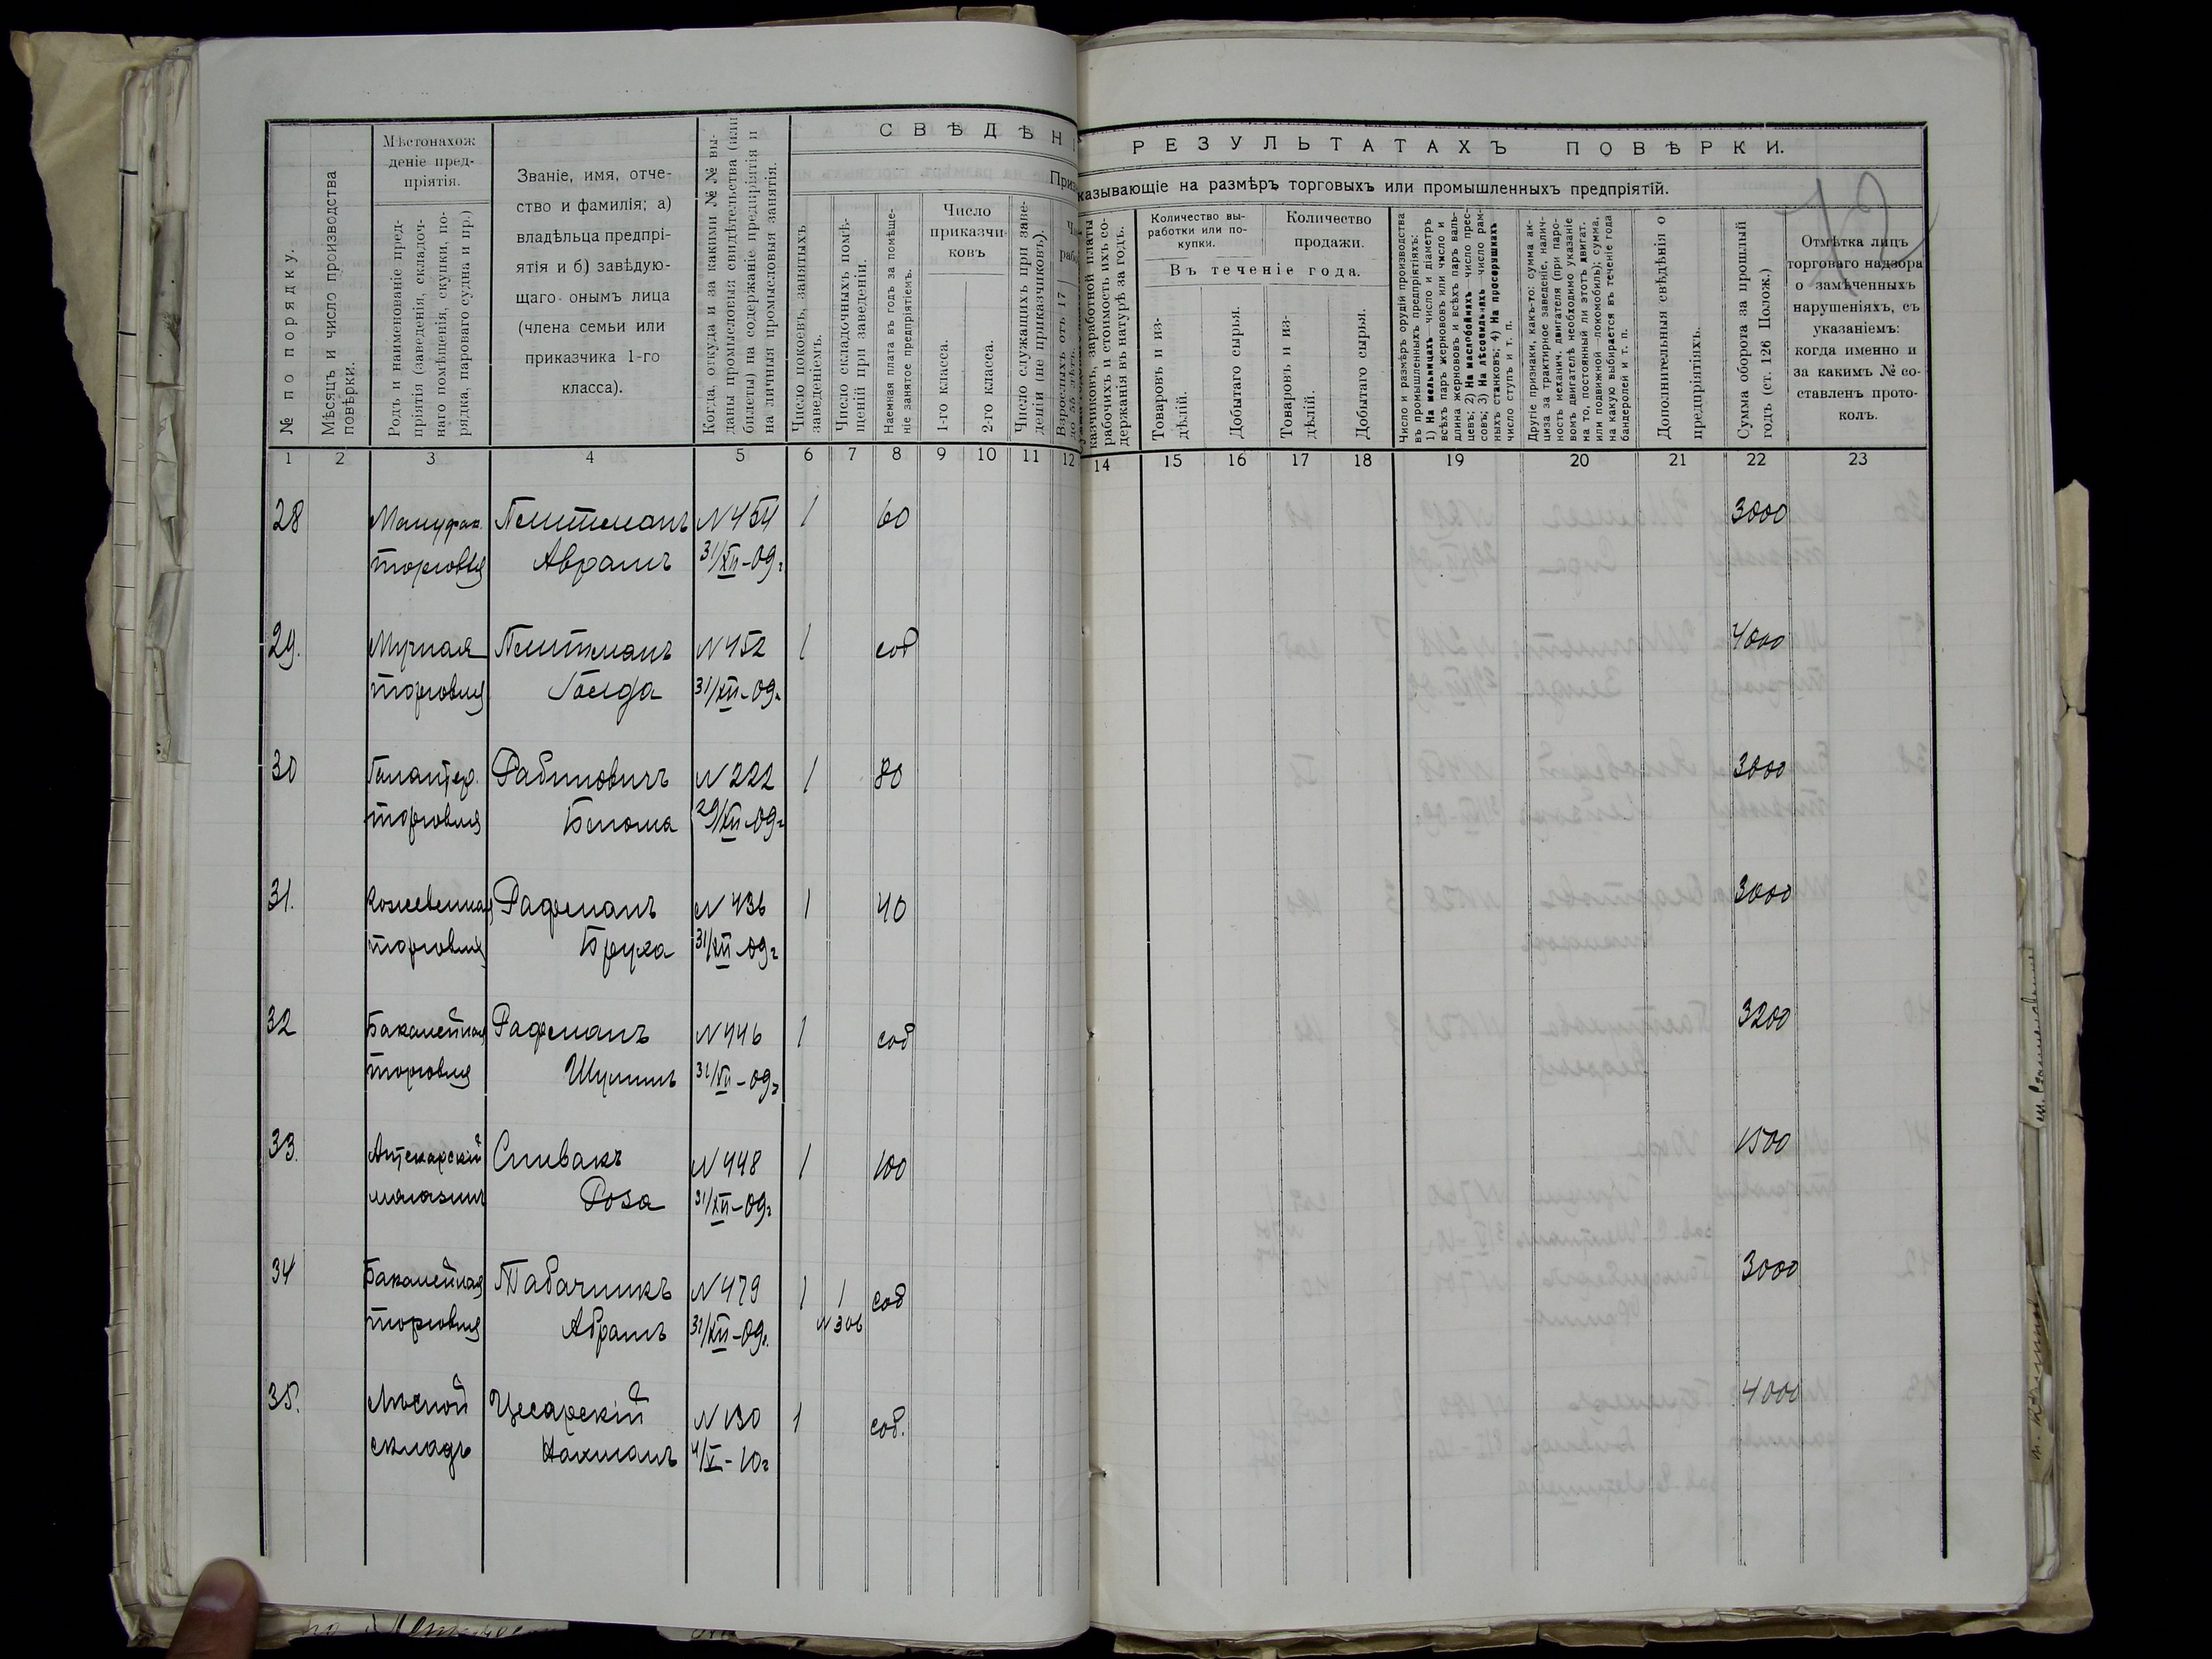 СВѢДѢНІ
РЕЗУЛЬТАТАХЪ ПОВѢРКИ.
Призн
казывающіе на размѣръ торговыхъ или промышленныхъ предпріятій.
№ по порядку.
Мѣсяцъ и число производства
повѣрки.
Мѣстонахож
деніе пред-
пріятія.
Родъ и наименованіе пред-
пріятія (заведенія, складоч-
наго помѣщенія, скупки, по-
рядка, парового судна и пр.)
Званіе, имя, отче-
ство и фамилія; а)
владѣльца предпрі-
ятія и б) завѣдую-
щаго онымъ лица
(члена семьи или
приказчика 1-го
класса).
Когда, откуда и за какими №№ вы-
даны промысловыя свидѣтельства (или
билеты) на содержаніе предпріятія и
на личныя промысловыя занятія.
Число покоевъ, занятыхъ
заведеніемъ.
Число складочныхъ помѣ-
щеній при заведеніи.
Наемная плата въ годъ за помѣще-
ніе занятое предпріятіемъ.
Число
приказчи-
ковъ
1-го класса.
2-го класса.
Число служащихъ при заве-
деніи (не приказчиковъ).
Взрослыхъ отъ 17
до 55 лѣтъ.
казчиковъ, заработной платы
рабочихъ и стоимость ихъ со-
держанія въ натурѣ за годъ.
Количество вы-
работки или по-
купки.
Количество
продажи.
Въ теченіе года.
Товаровъ и из-
дѣлій.
Добытаго сырья.
Товаровъ и из-
дѣлій.
Добытаго сырья.
Число и размѣръ орудій производства
въ промышленныхъ предпріятіяхъ:
1) На мельницахъ число и діаметръ
всѣхъ паръ жернововъ или число и
длина жернововъ и всѣхъ паръ валь-
цевъ; 2) На маслобойняхъ число прес-
совъ; 3) На лѣсопильняхъ число рам-
ныхъ станковъ; 4) На просорушкахъ
число ступъ и т. п.
Другіе признаки, какъ-то: сумма ак-
циза за трактирное заведеніе, налич-
ность механич. двигателя (при паро-
вомъ двигателѣ необходимо указаніе
на то, постоянный ли этотъ двигат.
или подвижной—локомобиль); сумма,
на какую выбирается въ теченіе года
бандеролей и т. п.
Дополнительныя свѣдѣнія о
предпріятіяхъ.
Сумма оборота за прошлый
годъ (ст. 126 Полож.)
Отмѣтка лицъ
торговаго надзора
о замѣченныхъ
нарушеніяхъ, съ
указаніемъ:
когда именно и
за какимъ № со-
ставленъ прото-
колъ.
1 2 3 4 5 6 7 8 9 10 11 12 14 15 16 17 18 19 20 21 22 23
28 Мануфак. Пештманъ №454 1 60 3000
торговля Аврамъ 31/XII-09г
29. Мучная Пештманъ №452 1 соб 4000
торговля Голда 31/XII-09г
30 Галантер. Рабиновичъ №222 1 80 3000
торговля Белома 29/XII-09г
31. Кожевенная Рафманъ №436 1 40 3000
торговля Бруха 31/XII-09г
32 Бакалейная Рафманъ №446 1 соб 3200
торговля Шулимъ 31/XII-09г
33. Аптекарскій Спивакъ №448 1 100 1500
магазинъ Роза 31/XII-09г
34 Бакалейная Табачникъ №479 1 1 соб 3000
торговля Абрамъ 31/XII-09г. №306
35. Лѣсной Цесарскій №130 1 соб. 4000
складъ Нахманъ 4/V-10г